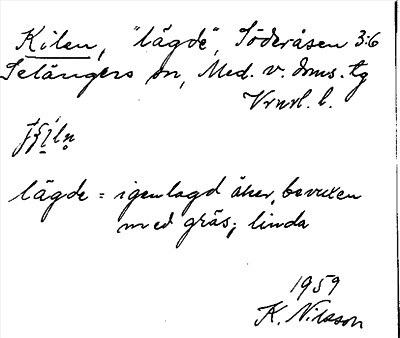 Kilen, "lägde", Söderåsen 3:6
Selångers sn, Med. v. doms. tg
lägde = igenlagd åker, bevuxen
med gräs; linda
1959
K. Nilsson